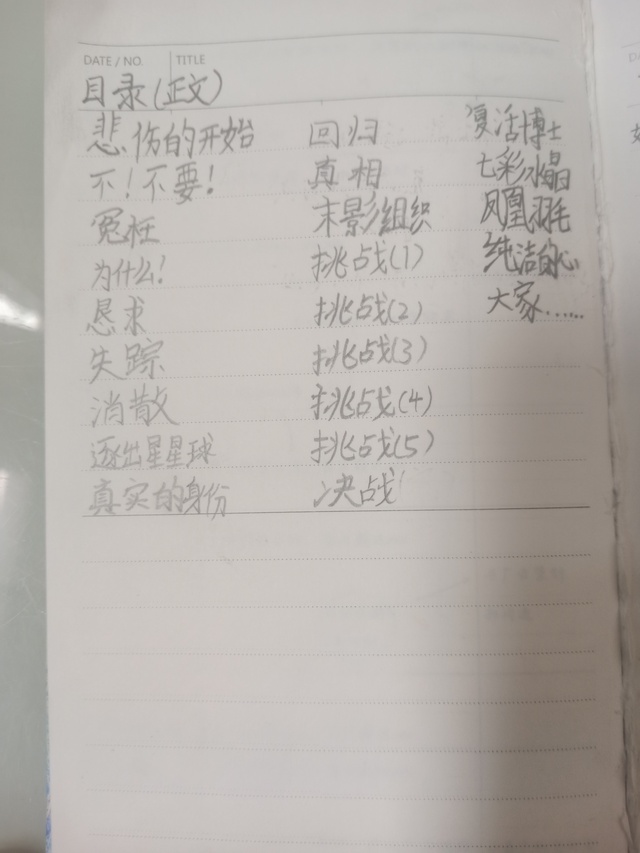 DATE / NO.
TITLE
目录(正文)
悲伤的开始
不!不要!
冤枉
为什么!
恳求
失踪
消散
逐出星星球
真实的身份
回归
真相
末影组织
挑战(1)
挑战(2)
挑战(3)
挑战(4)
挑战(5)
决战
复活博士
七彩水晶
凤凰羽毛
纯洁的心
大家……